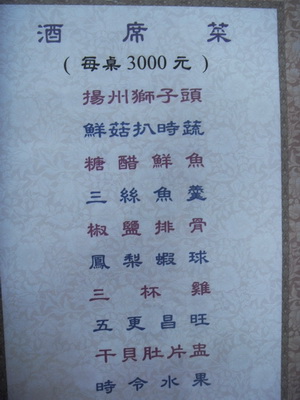 酒席菜
(每桌3000元)
揚州獅子頭
鮮菇扒時蔬
糖醋鮮魚
三絲魚羹
椒鹽排骨
鳳梨蝦球
三杯雞
五更昌旺
干貝肚片盅
時令水果